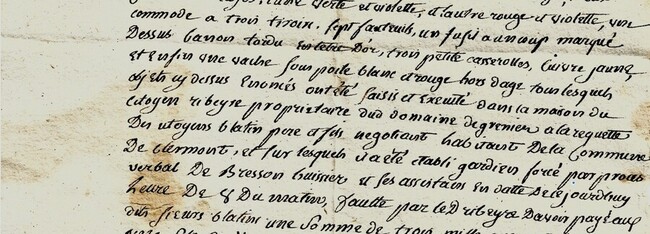 verte et violette, d'autre rouge et violette, une
commode a trois tiroir, sept fauteuils, un fusil a un coup marqué
Dessus canon tardu en lettre D'or, trois petite casserolles, Cuivre jaune,
et enfin une vache sous poile blanc et rouge hors dage tous lesquels
objets cy dessus Enoncés ont été saisis et executé dans la maison du
citoyen ribeyre proprietaire dud domaine de grenier a la requette
Des citoyens blatin pere et fils negotiant habitant De la Commune
De clermont, et sur lesquels il a été établi gardien forcé par procès
verbal De Bresson huissier et ses assistans En datte De ce jourdhuy
heure De 8 Du matin, faulte par le D ribeyre Davoir payé aux
dits sieurs blatin une somme de trois mille